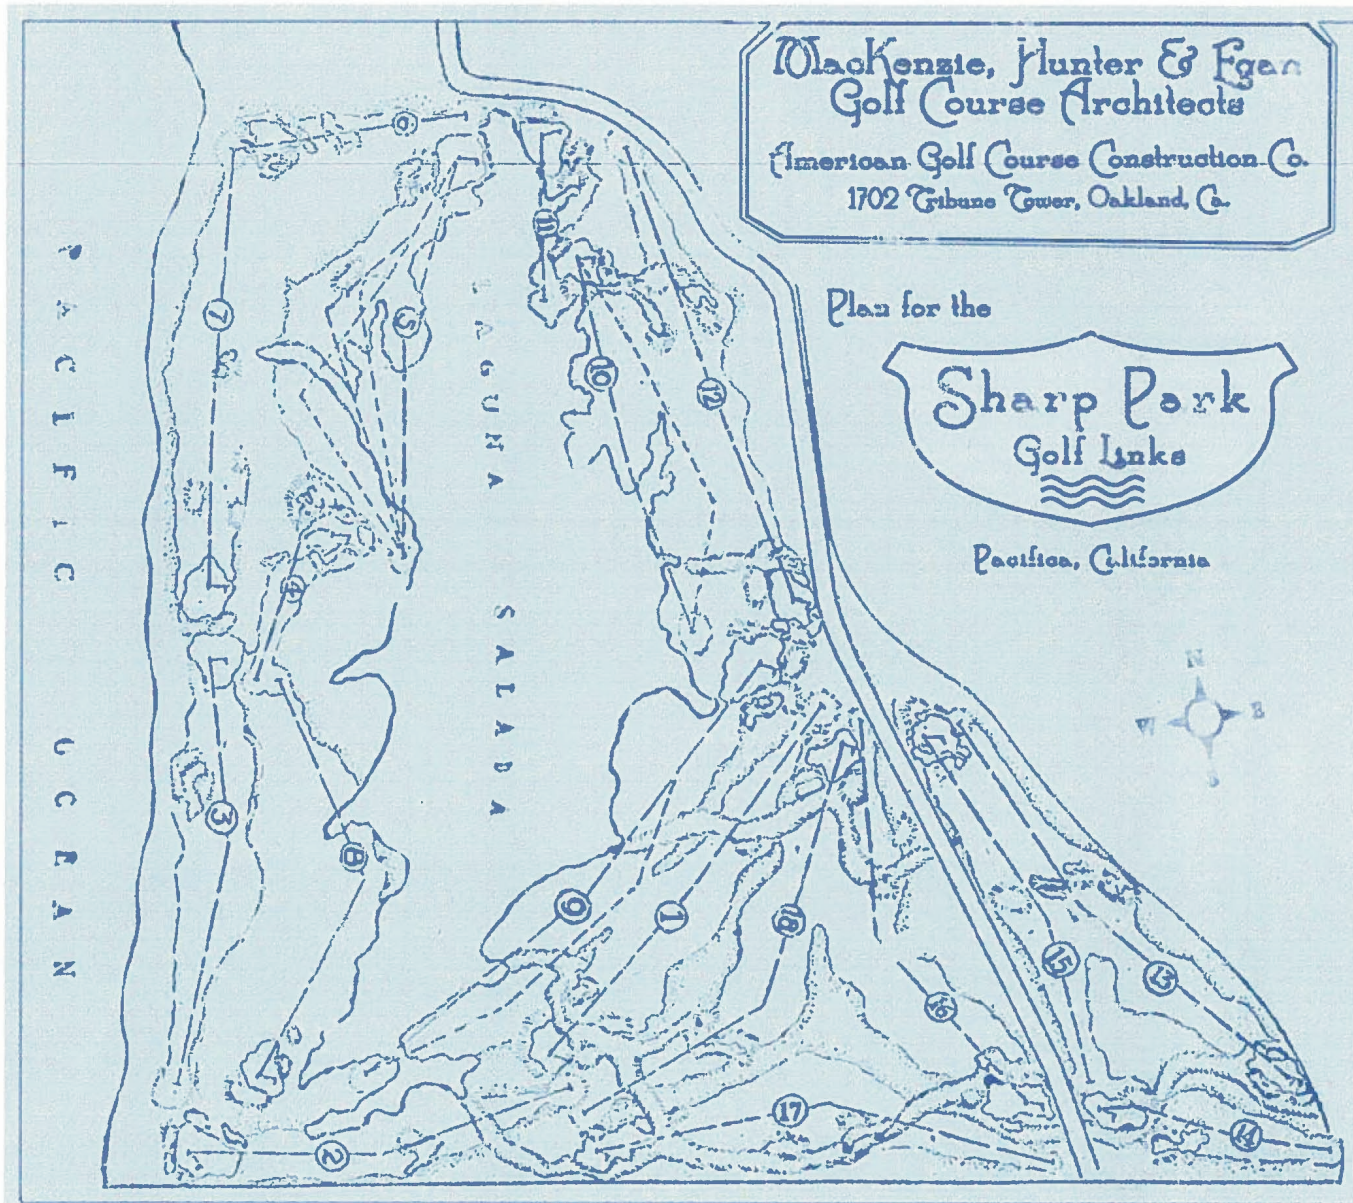 MacKenzie, Hunter & Egan
Golf Course Architects
American Golf Course Construction Co.
1702 Tribune Tower, Oakland, Ca.
Plan for the
Sharp Park
Golf Links
Pacifica, California
N
W E
S
PACIFIC OCEAN
LAGUNA SALADA
6
11
7
5
10
12
4
3
8
9
1
18
15
13
16
17
2
14